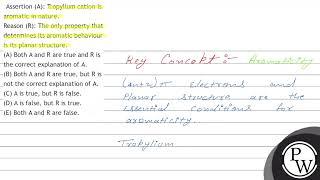 Assertion (A): Tropylium cation is
aromatic in nature.
Reason (R): The only property that
determines its aromatic behaviour
is its planar structure.
(A) Both A and R are true and R is
the correct explanation of A.
(B) Both A and R are true, but R is
not the correct explanation of A.
(C) A is true, but R is false.
(D) A is false, but R is true.
(E) Both A and R are false.
Key Concept : Aromaticity
(4n+2)π Electrons and
planar structure are the
essential conditions for
aromaticity.
Tropylium
P
W